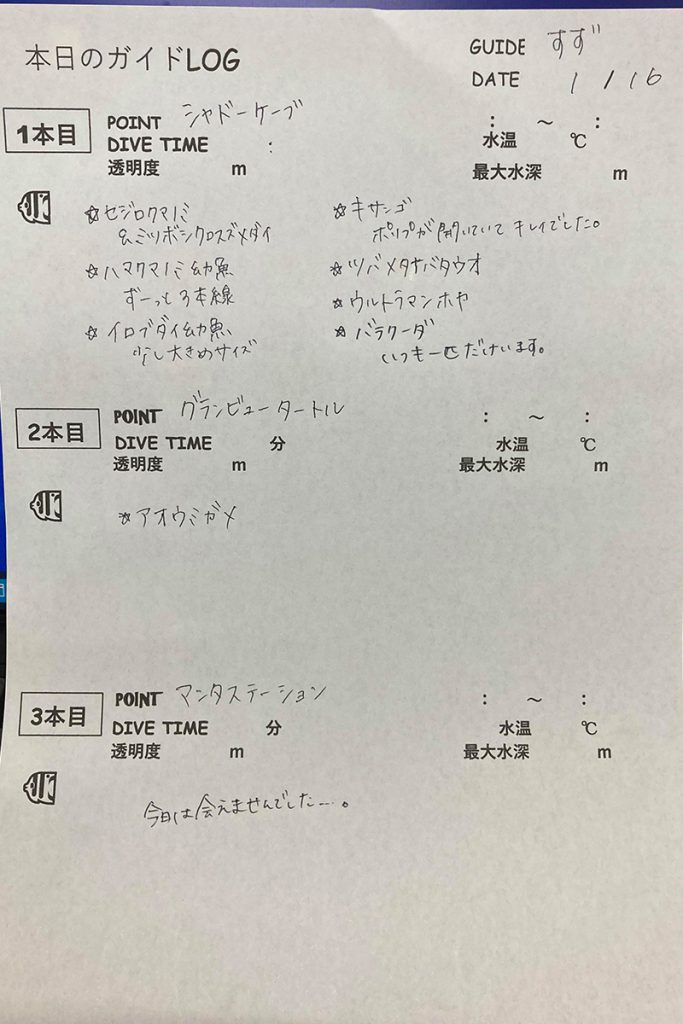 本日のガイドLOG
GUIDE すず
DATE 1/16
1本目
POINT シャドーケーブ : ～ :
DIVE TIME : 水温 ℃
透明度 m 最大水深 m
☆セジロクマノミ
&ミツボシクロスズメダイ
☆ハマクマノミ幼魚
ずーっと3本線
☆イロブダイ幼魚
少し大きめサイズ
☆キサンゴ
ポリプが開いていてキレイでした。
☆ツバメタナバタウオ
☆ウルトラマンホヤ
☆バラクーダ
いつも一匹だけいます。
2本目
POINT グランビュータートル : ～ :
DIVE TIME 分 水温 ℃
透明度 m 最大水深 m
☆アオウミガメ
3本目
POINT マンタステーション : ～ :
DIVE TIME 分 水温 ℃
透明度 m 最大水深 m
今日は会えませんでした…。